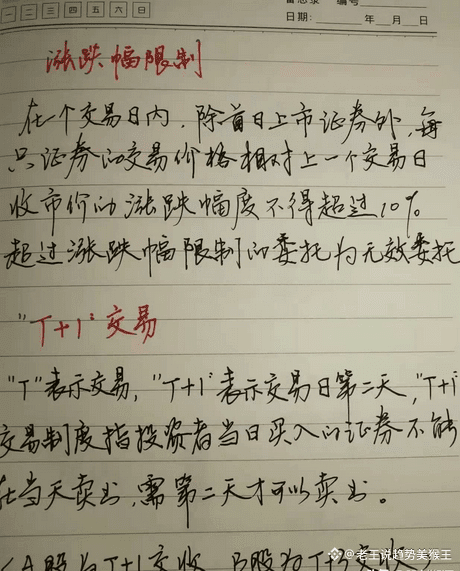 一 二 三 四 五 六 日
备忘录 编号
日期: 年 月 日
涨跌幅限制
在一个交易日内,除首日上市证券外,每
只证券的交易价格相对上一个交易日
收市价的涨跌幅度不得超过10%
超过涨跌幅限制的委托为无效委托
"T+1"交易
"T"表示交易,"T+1"表示交易日第二天,"T+1"
交易制度指投资者当日买入的证券不能
在当天卖出,需第二天才可以卖出。
(A股为T+1交收,B股为T+3交收
@老王说趋势美猴王